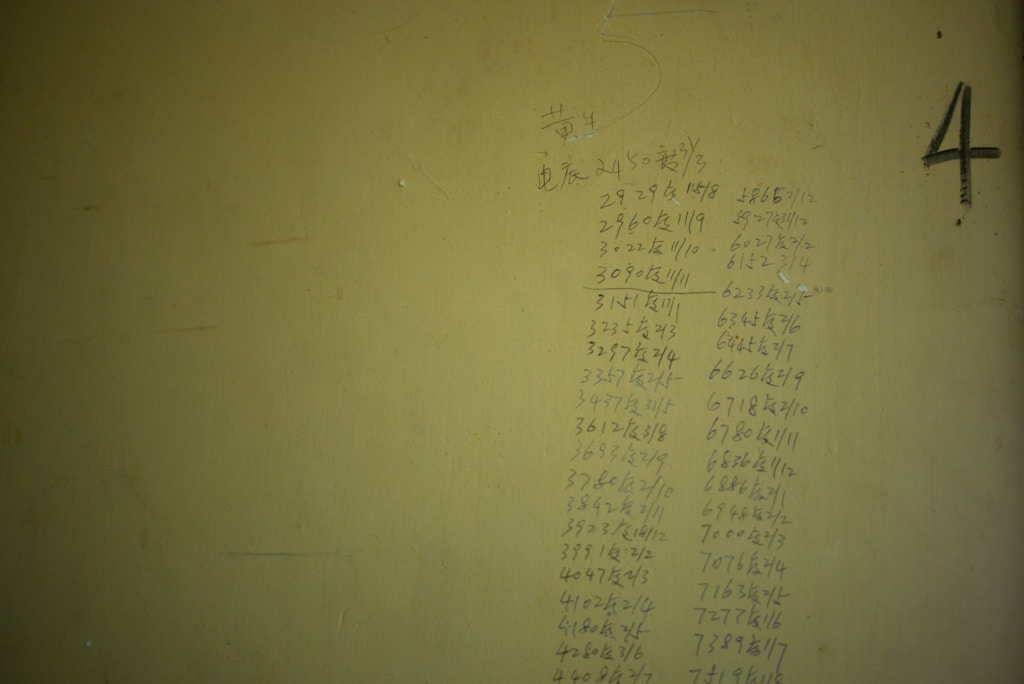 4
黄
电底 2450度 31/3
2929度 15/8
2960度 11/9
3022度 11/10
3090度 11/11
3151度 11/1
3235度 2/3
3297度 2/4
3357度 2/5
3437度 31/5
3612度 3/8
3693度 2/9
3780度 2/10
3842度 2/11
3923度 18/12
3991度 2/2
4047度 2/3
4102度 2/4
4180度 2/5
4280度 3/6
4408度 2/7
5865 2/12
5927度 31/12
6027度 2/2
6152 3/4
6233度 2/5
6345度 2/6
6445度 2/7
6626度 2/9
6718度 2/10
6780度 1/11
6836度 1/12
6886度 2/1
6948度 2/2
7000度 2/3
7076度 2/4
7163度 2/5
7277度 1/6
7389度 1/7
7519度